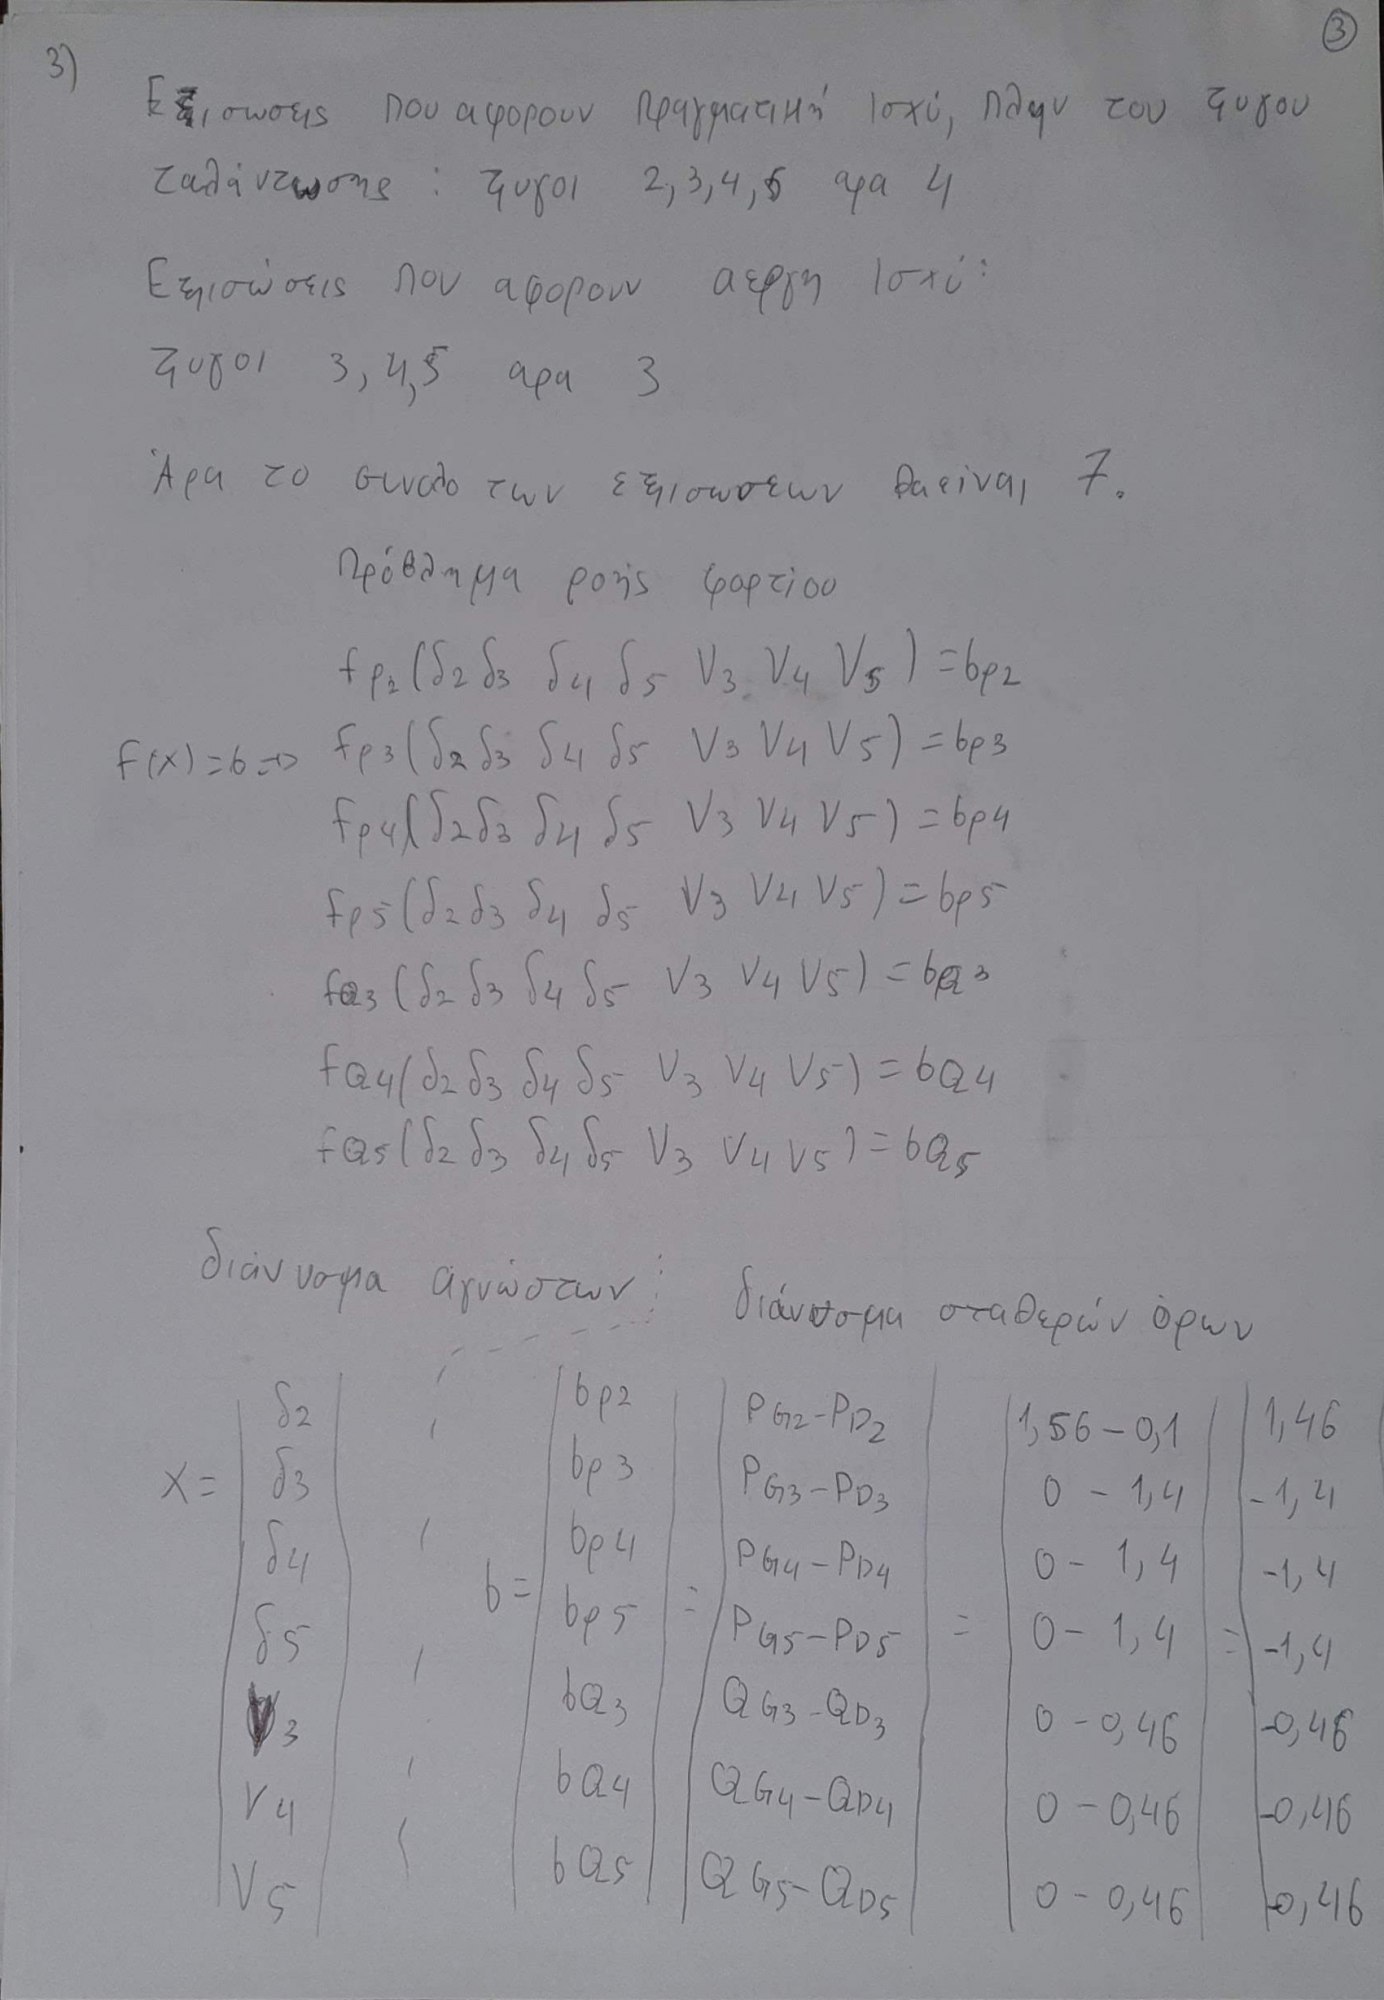 ③
3)
Εξισωσεις που αφορουν πραγματική ισχύ, πλην του ζυγου
ταλάντωσης : ζυγοι 2,3,4,5 αρα 4
Εξισώσεις που αφορουν αεργη ισχύ:
ζυγοι 3,4,5 αρα 3
Άρα το συνολο των εξισωσεων θα είναι 7.
Πρόβλημα ροής φορτίου
fp2(δ2 δ3 δ4 δ5 V3 V4 V5)=bp2
F(x)=b=> fp3(δ2 δ3 δ4 δ5 V3 V4 V5)=bp3
fp4(δ2 δ3 δ4 δ5 V3 V4 V5)=bp4
fp5(δ2 δ3 δ4 δ5 V3 V4 V5)=bp5
fQ3(δ2 δ3 δ4 δ5 V3 V4 V5)=bQ3
fQ4(δ2 δ3 δ4 δ5 V3 V4 V5)=bQ4
fQ5(δ2 δ3 δ4 δ5 V3 V4 V5)=bQ5
διάνυσμα αγνώστων: διάνυσμα σταθερών όρων
δ2 bp2 PG2-PD2 1,56-0,1 1,46
x= δ3 bp3 PG3-PD3 0-1,4 -1,4
δ4 bp4 PG4-PD4 0-1,4 -1,4
δ5 b= bp5 = PG5-PD5 = 0-1,4 = -1,4
V3 bQ3 QG3-QD3 0-0,46 -0,46
V4 bQ4 QG4-QD4 0-0,46 -0,46
V5 bQ5 QG5-QD5 0-0,46 -0,46